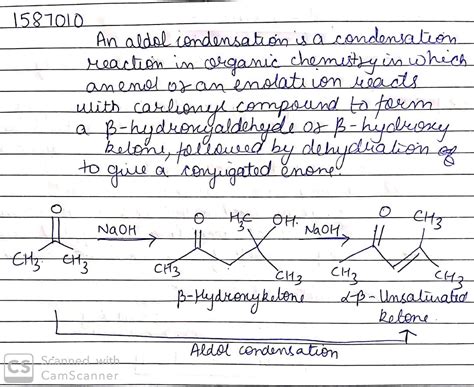 1587010
An aldol condensation is a condensation
reaction in organic chemistry in which
an enol or an enolate ion reacts
with carbonyl compound to form
a β-hydroxyaldehyde or β-hydroxy
ketone, followed by dehydration
to give a conjugated enone.
O O H₃C OH O CH₃
NaOH NaOH
CH₃ CH₃ CH₃ CH₃ CH₃ CH₃
β-Hydroxyketone α-β-Unsaturated
ketone.
Aldol condensation
CS Scanned with
CamScanner